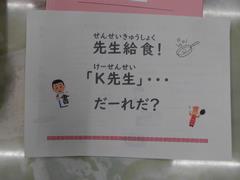 せんせいきゅうしょく
先生給食！
けーせんせい
「K先生」…
だーれだ？